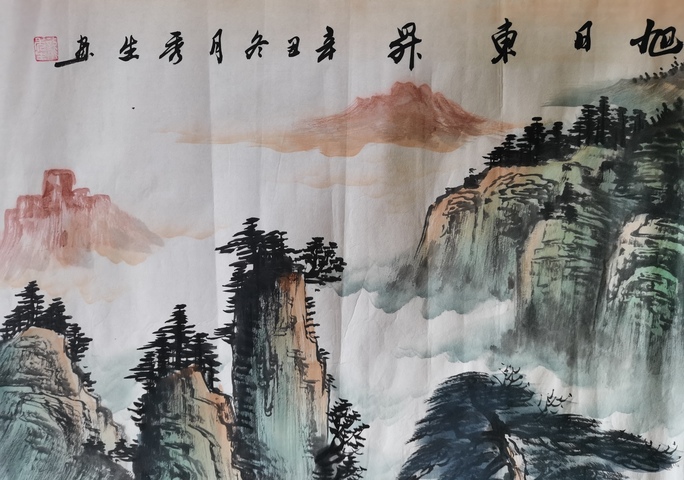 旭日東昇辛丑冬月秀生畫